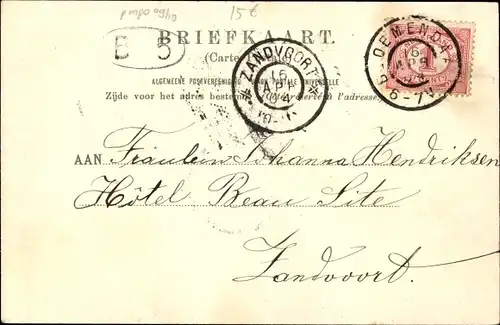 15€
BRIEFKAART.
(Carte
ALGEMEENE POSTVEREENIGING UNIVERSELLE
Zijde voor het adres bestemd. à l'adresse.
B 5
ZANDVOORT
16 APR
BLOEMENDAAL
16 APR
AAN Fräulein Johanna Hendriksen
Hôtel Beau Site
Zandvoort.